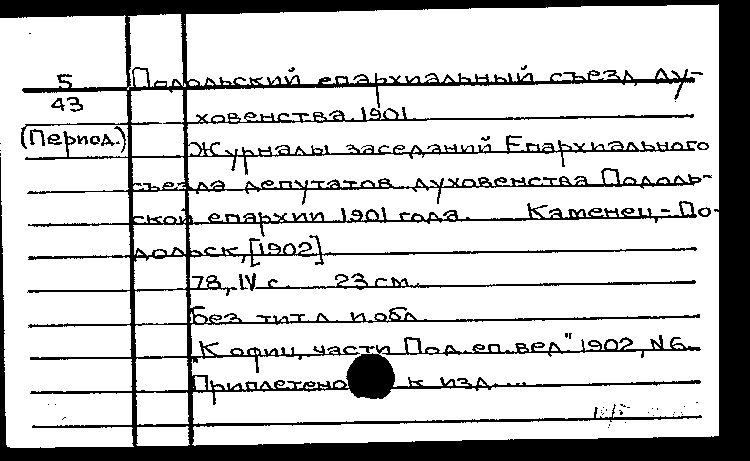 5 Подольский епархиальный съезд ду-
43 ховенства. 1901.
(Период.) Журналы заседаний Епархиального
съезда депутатов духовенства Подоль-
ской епархии 1901 года. Каменец-По-
дольск, [1902].
78, IV с. 23 см.
Без тит. л. и обл.
"К офиц. части Под. еп. вед." 1902, N6.
Приплетено к изд. ...